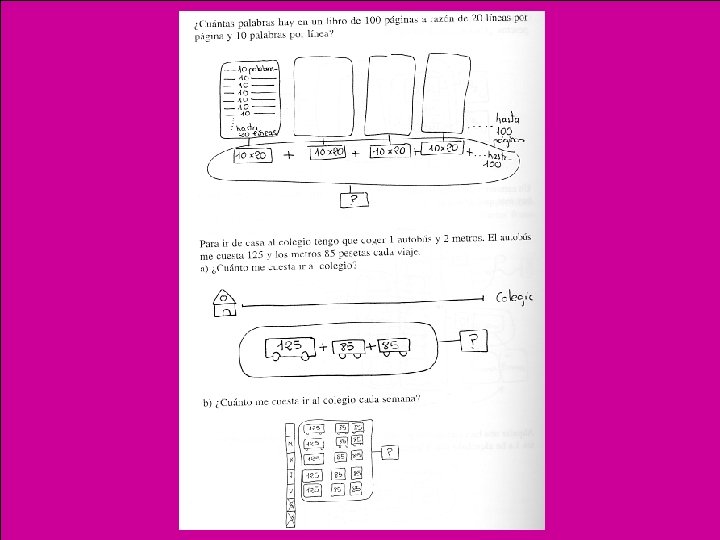 ¿Cuántas palabras hay en un libro de 100 páginas a razón de 20 líneas por
página y 10 palabras por línea?
10 palabras
10
10
10
10
10
10
hasta
20 líneas
hasta
100
páginas
10x20 + 10x20 + 10x20 + 10x20 + ... hasta
100
?
Para ir de casa al colegio tengo que coger 1 autobús y 2 metros. El autobús
me cuesta 125 y los metros 85 pesetas cada viaje.
a) ¿Cuánto me cuesta ir al colegio?
Colegio
125 + 85 + 85 ?
b) ¿Cuánto me cuesta ir al colegio cada semana?
125 85 85
125 85 85
125 85 85
125 85 85
125 85 85
?